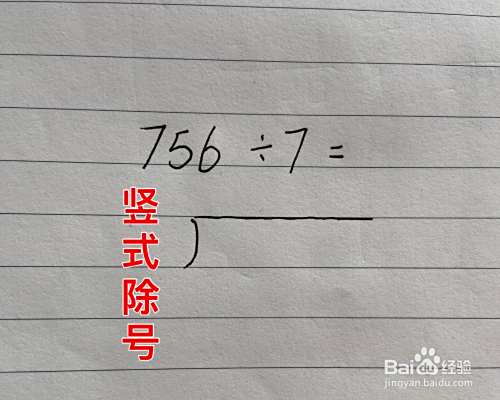 756 ÷ 7 =
竖式除号
Baidu 经验
jingyan.baidu.com